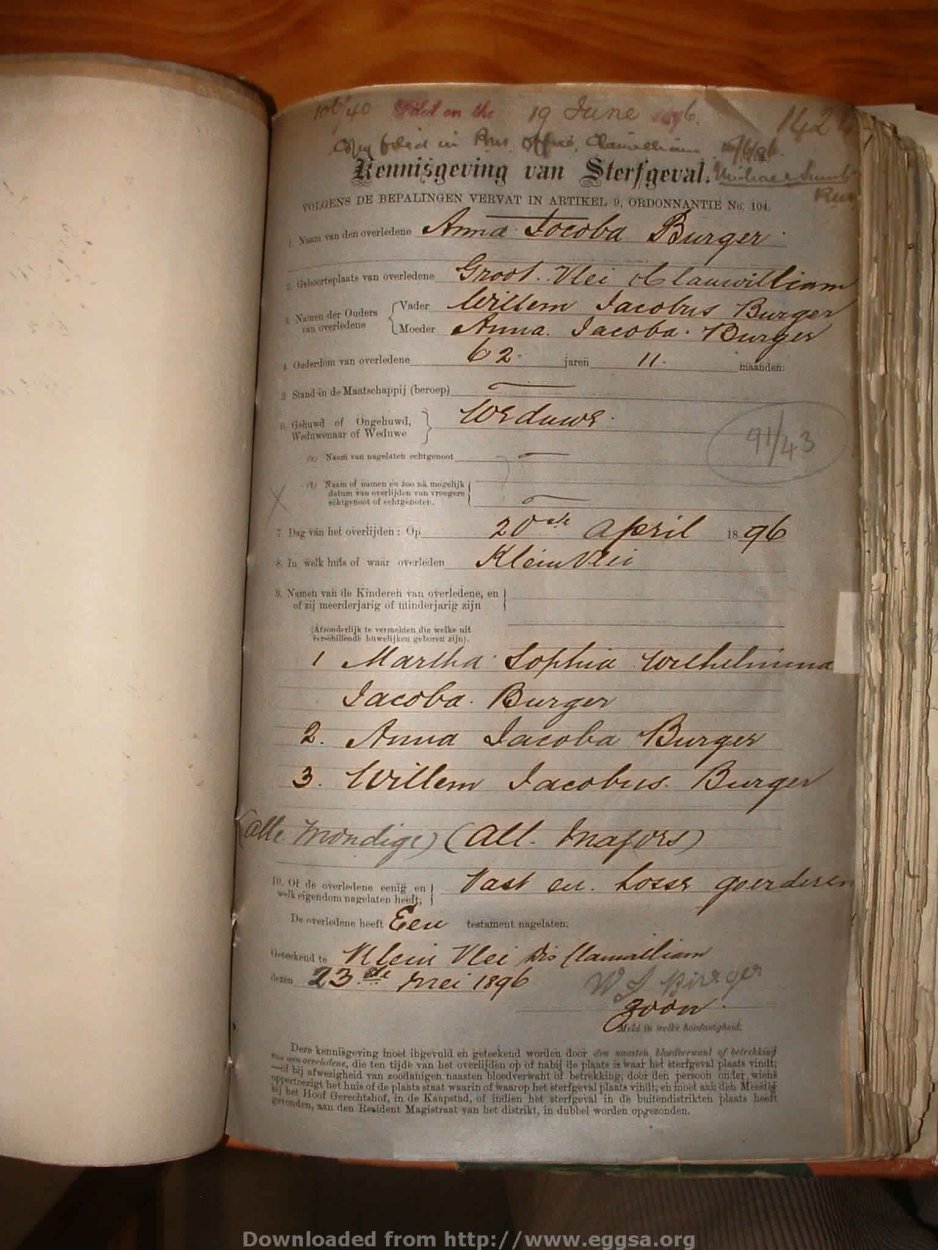 106/40 Filed on the 19 June 1896. 142
Copy filed in Res. Office, Clanwilliam
Kennisgeving van Sterfgeval.
VOLGENS DE BEPALINGEN VERVAT IN ARTIKEL 9, ORDONNANTIE No. 104.
1. Naam van den overledene Anna Jocoba Burger
2. Geboorteplaats van overledene Groot Vlei Clanwilliam
3. Namen der Ouders van overledene { Vader Willem Jacobus Burger
Moeder Anna Jacoba Burger
4. Ouderdom van overledene 62 jaren 11 maanden.
5. Stand in de Maatschappij (beroep) —
6. Gehuwd of Ongehuwd,
Weduwenaar of Weduwe } Weduwe
91/43
(a) Naam van nagelaten echtgenoot —
(b) Naam of namen en zoo na mogelijk
datum van overlijden van vroegere
echtgenoot of echtgenoten. —
7. Dag van het overlijden: Op 20ste April 1896
8. In welk huis of waar overleden Klein Vlei
9. Namen van de Kinderen van overledene, en
of zij meerderjarig of minderjarig zijn
(Afzonderlijk te vermelden die welke uit
verschillende huwelijken geboren zijn).
1 Martha Sophia Wilhelmina
Jacoba Burger
2. Anna Jacoba Burger
3. Willem Jacobus Burger
(alle Mondige) (All Majors)
10. Of de overledene eenig en
welk eigendom nagelaten heeft; } Vast en losse goederen
De overledene heeft Een testament nagelaten.
Geteekend te Klein Vlei Dis Clanwilliam
dezen 23ste Mei 1896 W J Burger
Zoon
Meld in welke hoedanigheid.
Deze kennisgeving moet ingevuld en geteekend worden door den naasten bloedverwant of betrekking
van den overledene, die ten tijde van het overlijden op of nabij de plaats is waar het sterfgeval plaats vindt;
—of bij afwezigheid van zoodanigen naasten bloedverwant of betrekking, door den persoon onder wiens
oppertoezigt het huis of de plaats staat waarin of waarop het sterfgeval plaats vindt, en moet aan den Meester
bij het Hoof Gerechtshof, in de Kaapstad, of indien het sterfgeval in de buitendistrikten plaats heeft
gevonden, aan den Resident Magistraat van het distrikt, in dubbel worden opgezonden.
Downloaded from http://www.eggsa.org